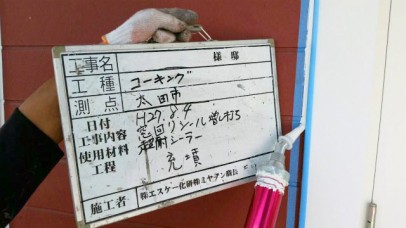 工事名 様邸
工種 コーキング
測点 太田市
日付 H27.8.4
工事内容 窓回リシール増し打ち
使用材料 シーラー
工程 充填
施工者 ㈱エスケー化研㈱ミヤケン